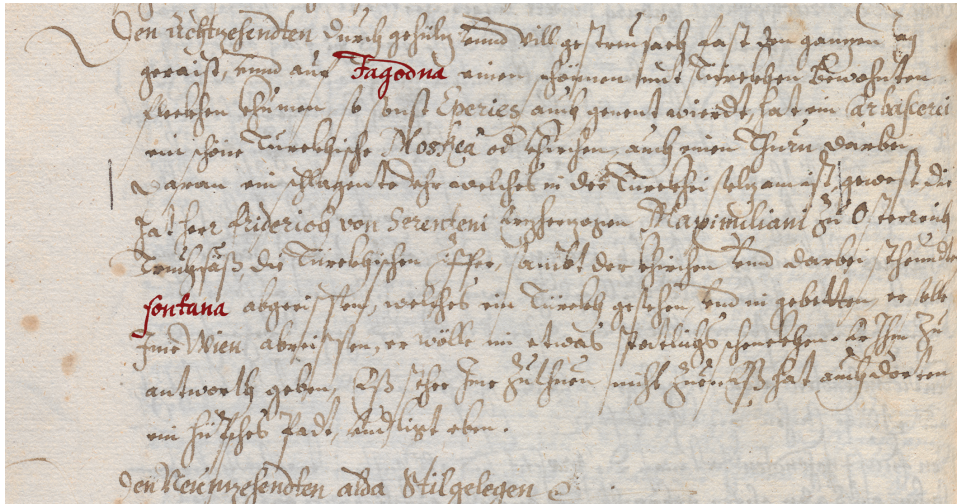 Den Achtzehendten durch gehültz vnnd vill gestreusach fast den ganzen tag
geraist, vnnd auf Jagodna einen schönnen mit Türckhen bewohnten
fleckhen khumen so sonst Eperies auch genent wierdt, hat ein
ein schöne Türckhische Moskea od khirchen, auch einen Thurn darbei,
Daran ein schlagente vhr welches in der Türckhei selzam ist, gewest die
hat herr Friderich von Serenteni Erzherzogen Maximiliani zu Österreich
Truchsäß die Türckhischen Ziffer, sambt der khirchen vnnd darbei stheundte
fontana abgerissen, welches ein Türckh gesehen, vnd in gebetten, er solle
Ime Wien abreissen, er wölle im etwas stattlichs schenckhen. Er Ihm zu
antworth geben, Eß sthee Ime zuthuen nicht Eß hat auch dorten
ein hübsches Badt, vnd ligt eben.
Den Neünzehendten alda Stilgelegen